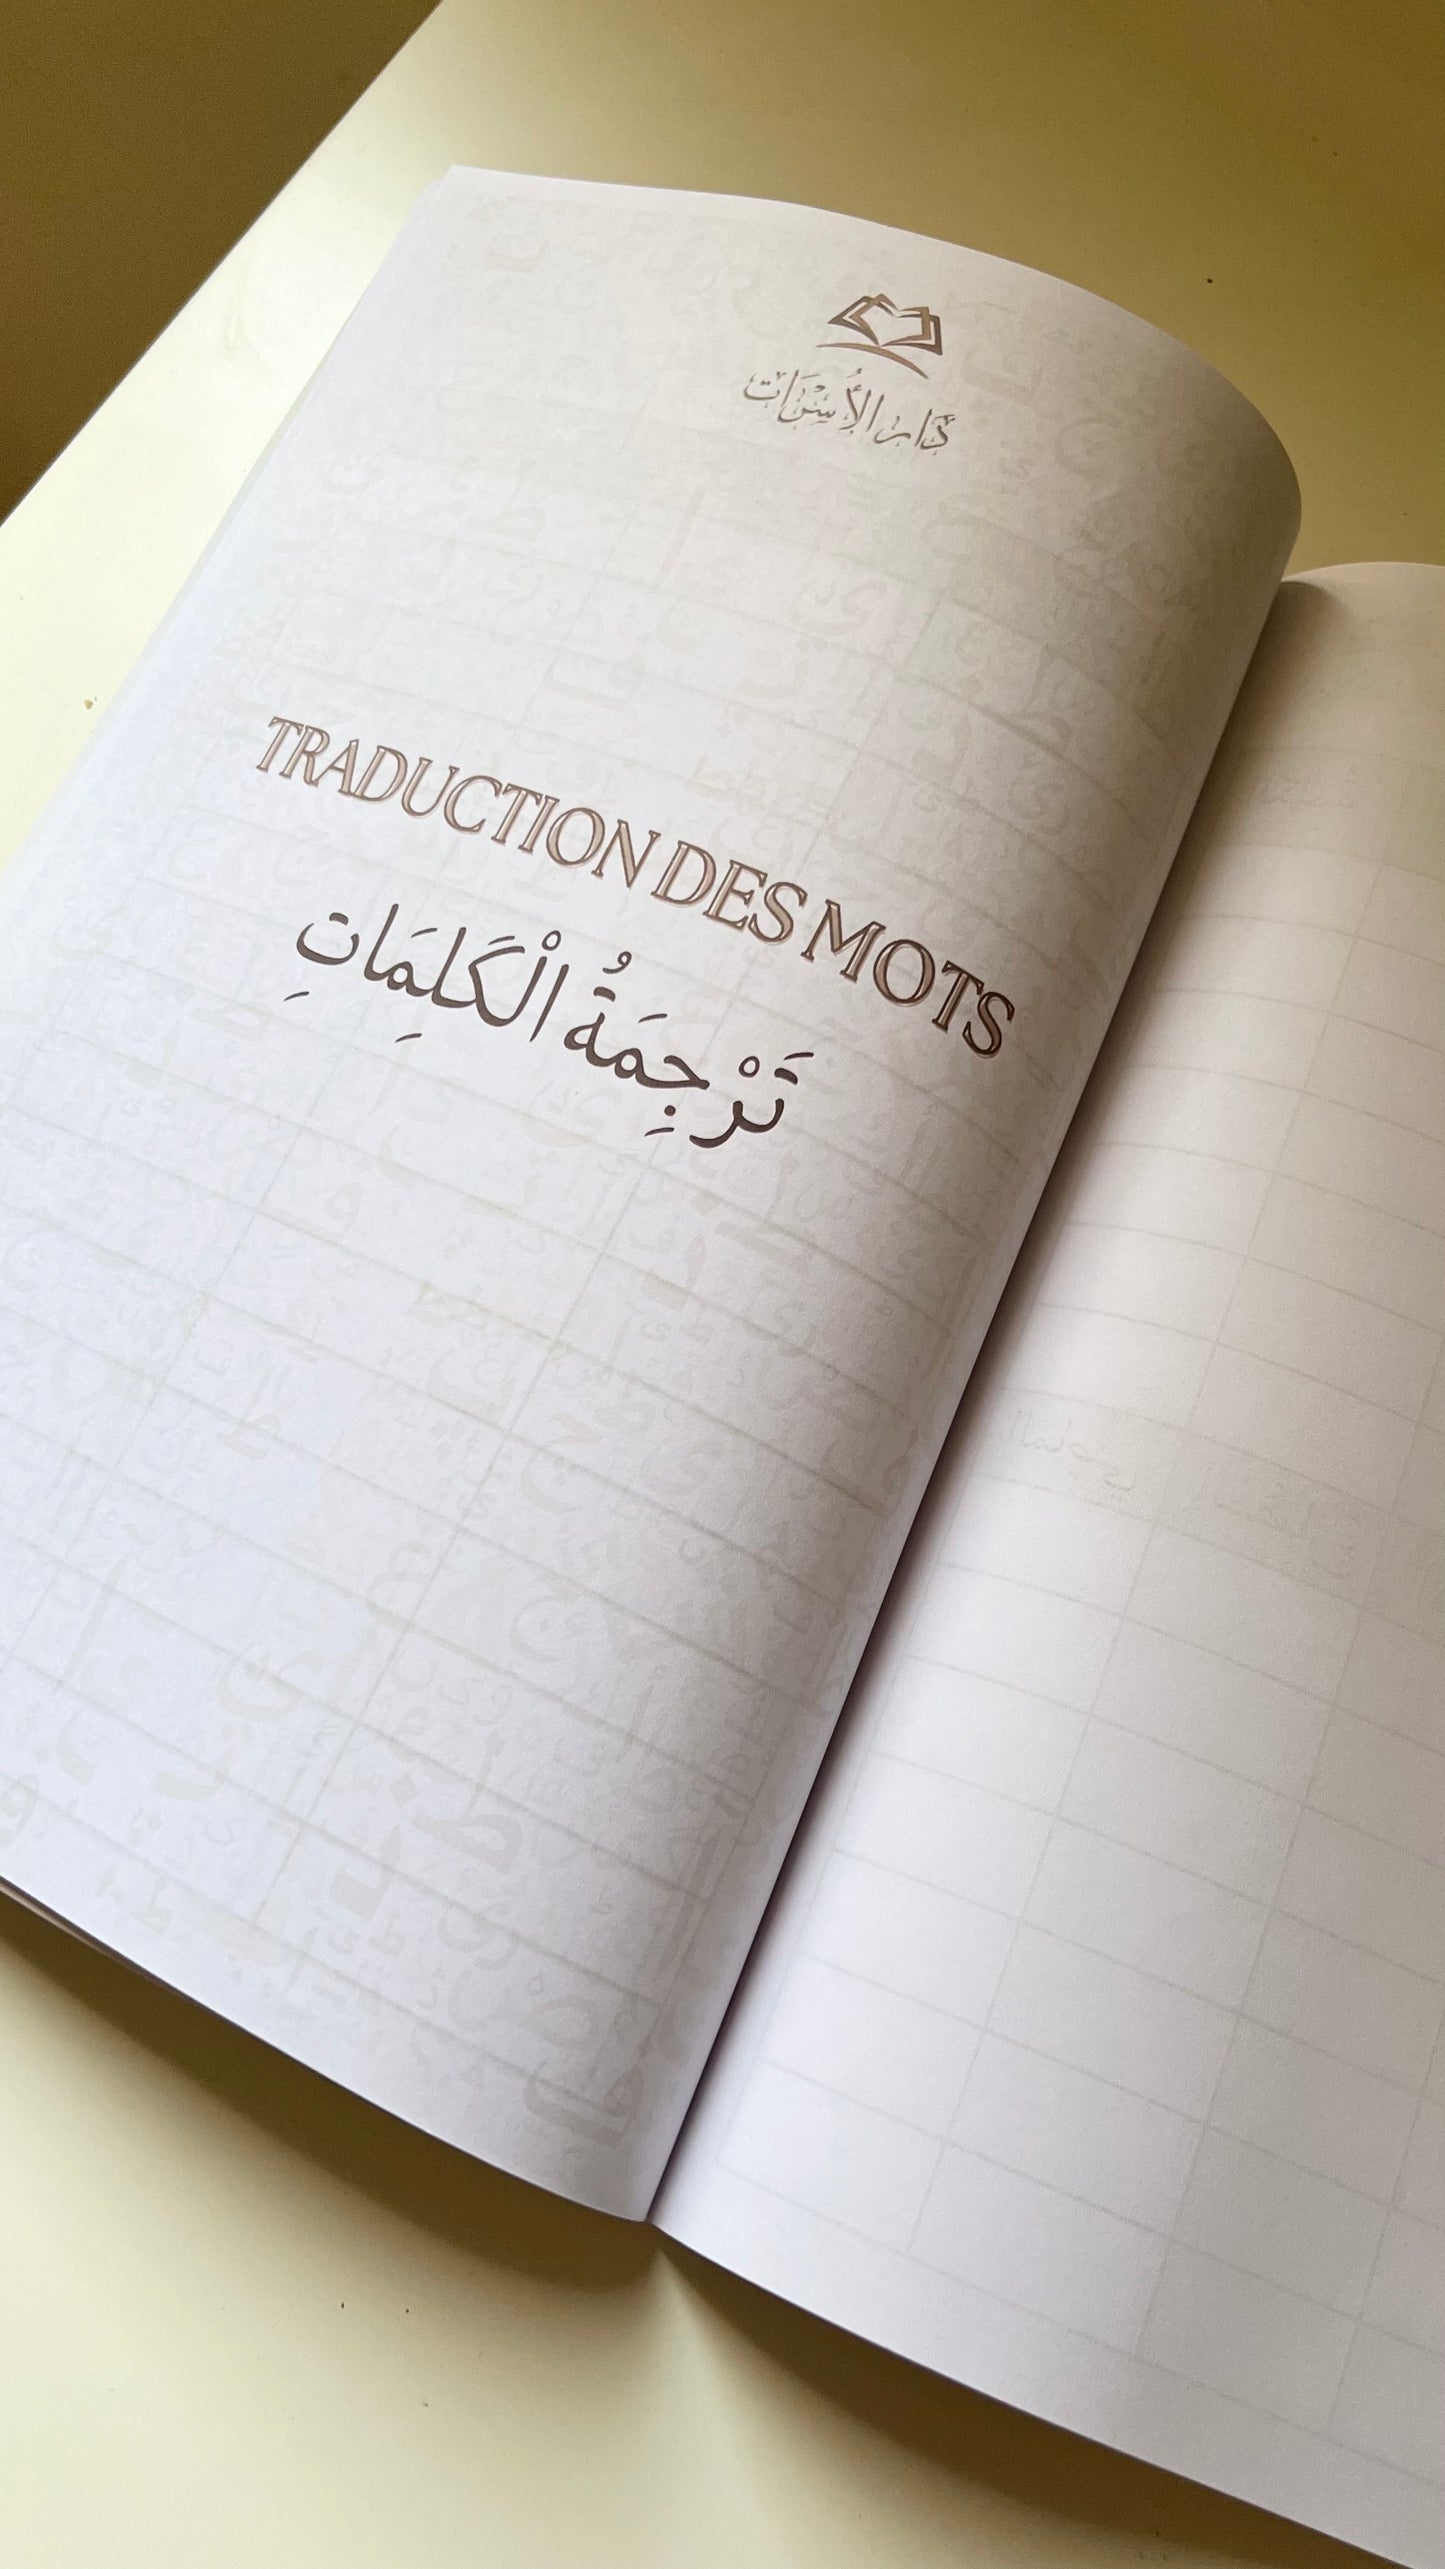 دَار الأُسْرَات
TRADUCTION DES MOTS
تَرْجِمَةُ الْكَلِمَاتِ